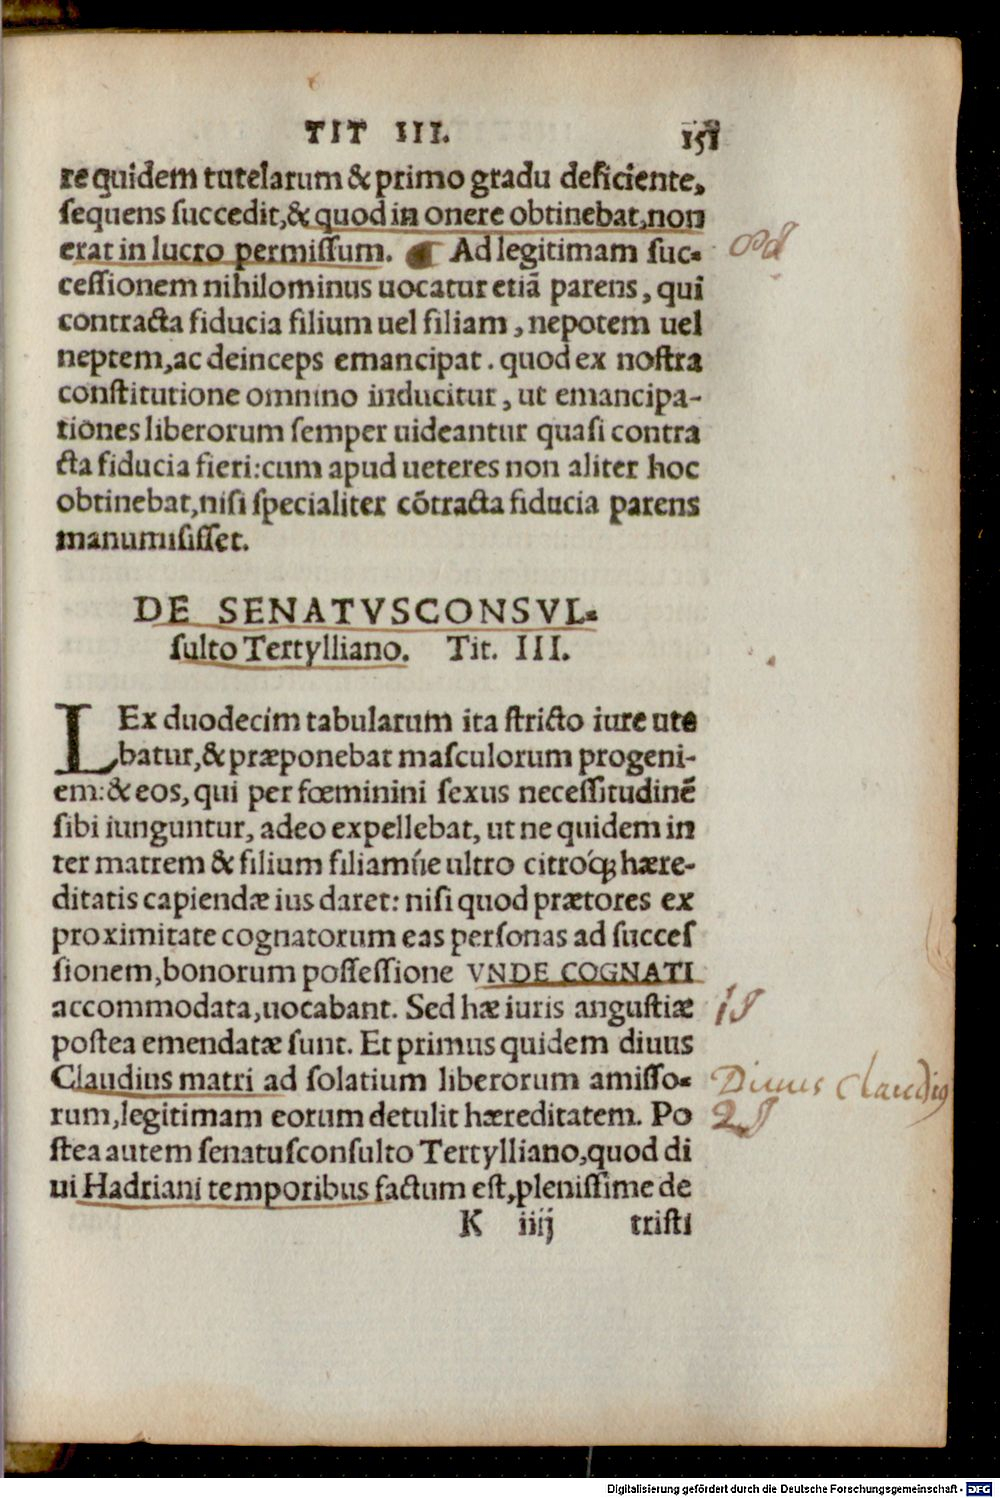 TIT III. 151
re quidem tutelarum & primo gradu deficiente,
sequens succedit, & quod in onere obtinebat, non
erat in lucro permissum. Ad legitimam suc-
cessionem nihilominus uocatur etiā parens, qui
contracta fiducia filium uel filiam, nepotem uel
neptem, ac deinceps emancipat. quod ex nostra
constitutione omnino inducitur, ut emancipa-
tiones liberorum semper uideantur quasi contra
cta fiducia fieri: cum apud ueteres non aliter hoc
obtinebat, nisi specialiter cōtracta fiducia parens
manumisisset.
DE SENATVSCONSVL-
sulto Tertylliano. Tit. III.
LEx duodecim tabularum ita stricto iure ute
batur, & præponebat masculorum progeni-
em: & eos, qui per fœminini sexus necessitudinē
sibi iunguntur, adeo expellebat, ut ne quidem in
ter matrem & filium filiamúe ultro citroq́ꝫ hære-
ditatis capiendæ ius daret: nisi quod prætores ex
proximitate cognatorum eas personas ad succes
sionem, bonorum possessione VNDE COGNATI
accommodata, uocabant. Sed hæ iuris angustiæ
postea emendatæ sunt. Et primus quidem diuus
Claudius matri ad solatium liberorum amisso-
Diuus Claudius
rum, legitimam eorum detulit hæreditatem. Po
stea autem senatusconsulto Tertylliano, quod di
ui Hadriani temporibus factum est, plenissime de
K iiij tristi
Digitalisierung gefördert durch die Deutsche Forschungsgemeinschaft - DFG